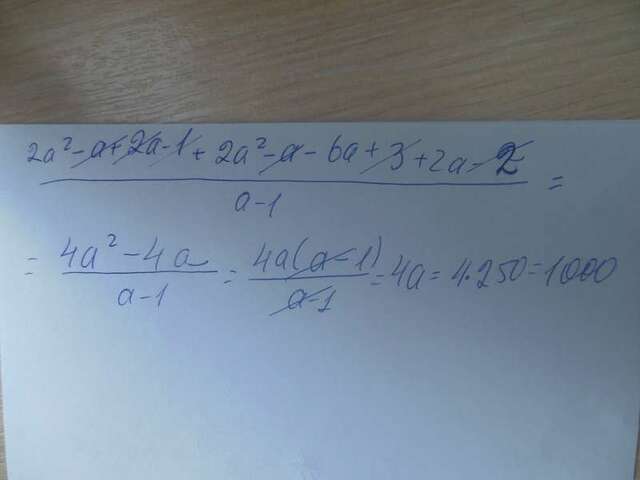 2a² - a + 2a - 1 + 2a² - a - 6a + 3 + 2a - 2 / a - 1 =
= 4a² - 4a / a - 1 = 4a(a - 1) / a - 1 = 4a = 4·250 = 1000